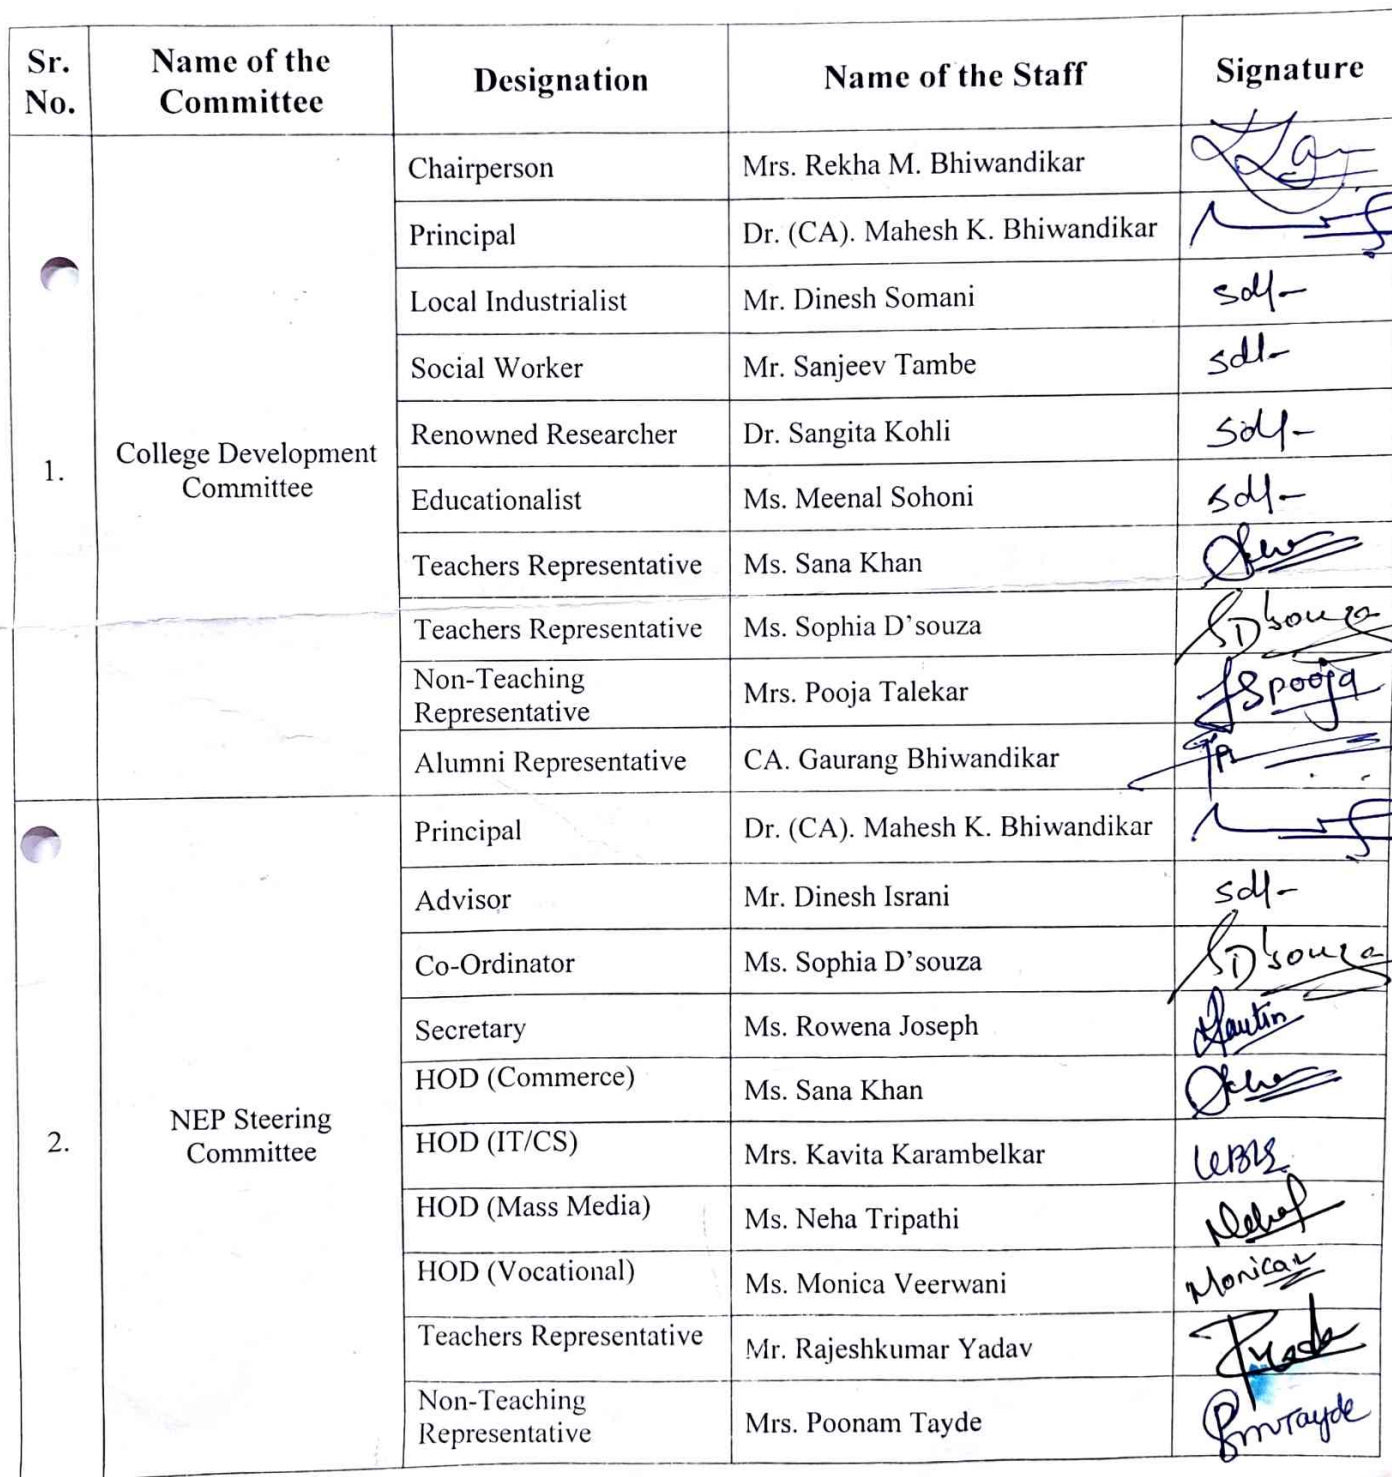 Sr. No. Name of the Committee Designation Name of the Staff Signature
1. College Development Committee
Chairperson Mrs. Rekha M. Bhiwandikar
Principal Dr. (CA). Mahesh K. Bhiwandikar
Local Industrialist Mr. Dinesh Somani sd/-
Social Worker Mr. Sanjeev Tambe sd/-
Renowned Researcher Dr. Sangita Kohli sd/-
Educationalist Ms. Meenal Sohoni sd/-
Teachers Representative Ms. Sana Khan
Teachers Representative Ms. Sophia D'souza SD'souza
Non-Teaching Representative Mrs. Pooja Talekar Pooja
Alumni Representative CA. Gaurang Bhiwandikar
2. NEP Steering Committee
Principal Dr. (CA). Mahesh K. Bhiwandikar
Advisor Mr. Dinesh Israni sd/-
Co-Ordinator Ms. Sophia D'souza SD'souza
Secretary Ms. Rowena Joseph
HOD (Commerce) Ms. Sana Khan
HOD (IT/CS) Mrs. Kavita Karambelkar
HOD (Mass Media) Ms. Neha Tripathi
HOD (Vocational) Ms. Monica Veerwani Monica
Teachers Representative Mr. Rajeshkumar Yadav
Non-Teaching Representative Mrs. Poonam Tayde